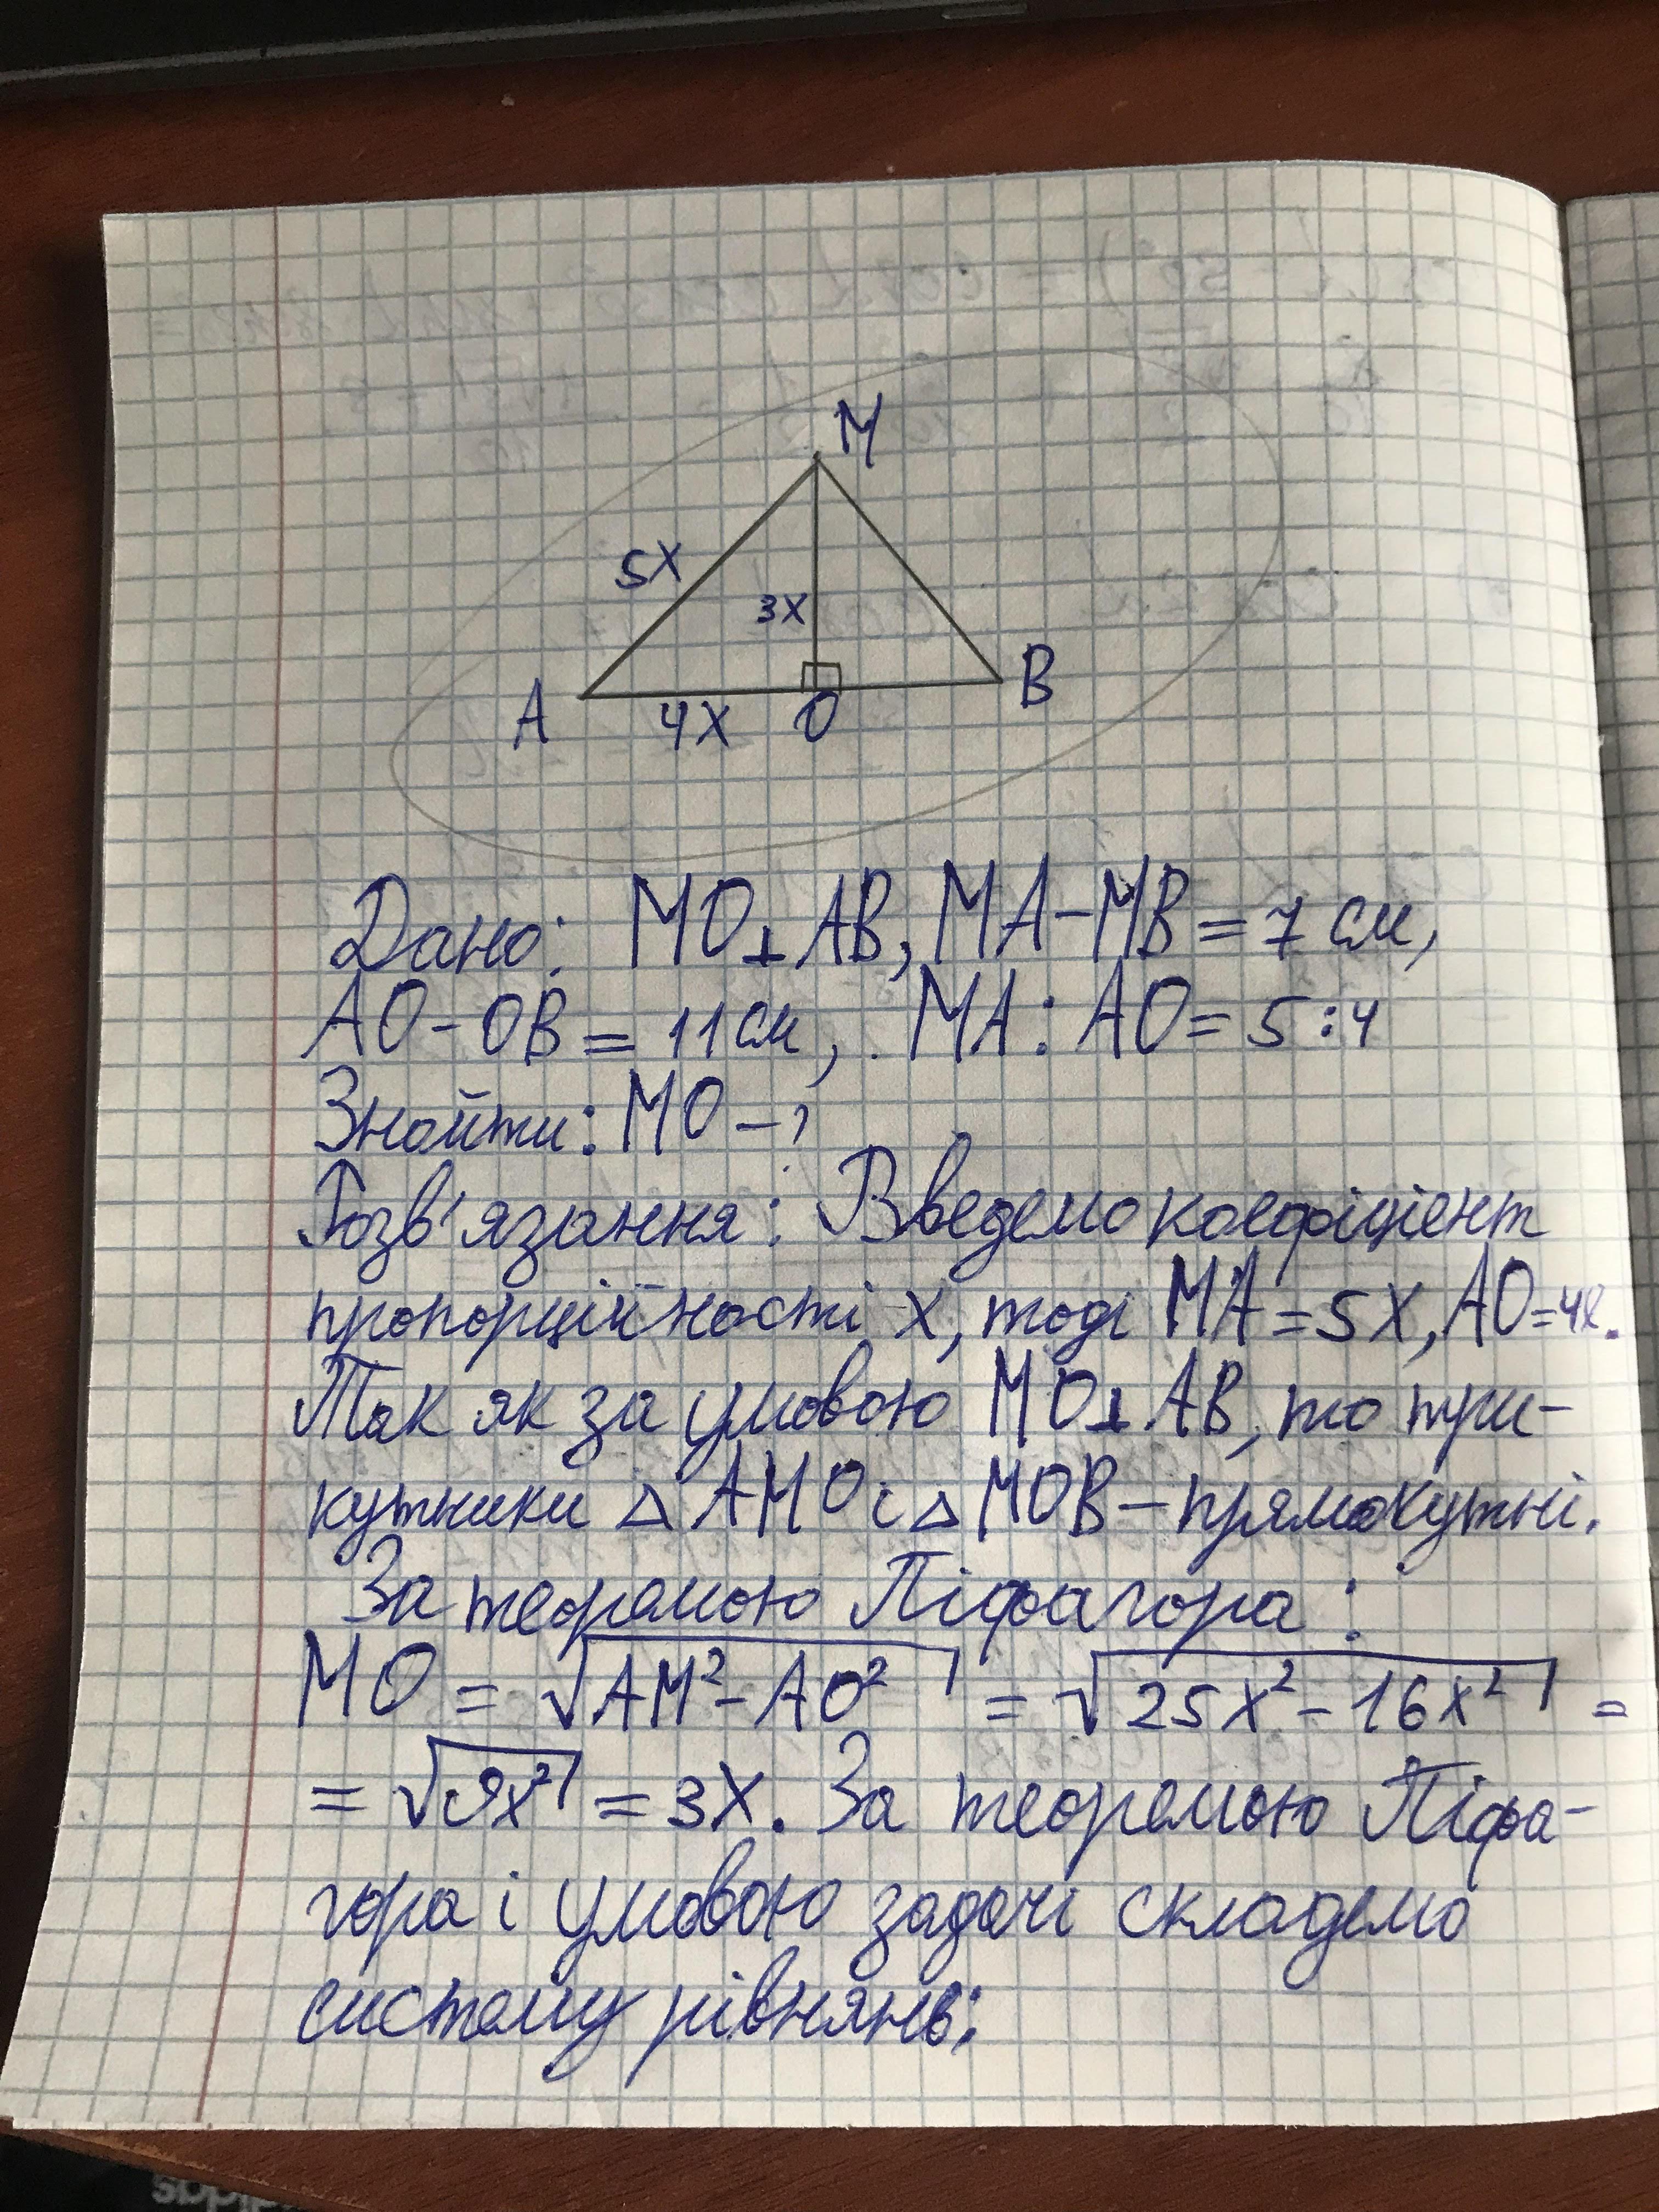 M
5x
3x
A
4x
O
B
Дано: MO⊥AB, MA-MB=7 см,
AO-OB=11 см, MA:AO=5:4
Знайти: MO-?
Розв'язання: Введемо коефіцієнт
пропорційності x, тоді MA=5x, AO=4x.
Так як за умовою MO⊥AB, то три-
кутники △AMO і △MOB-прямокутні.
За теоремою Піфагора:
MO=√(AM²-AO²)=√(25x²-16x²)=
=√(9x²)=3x. За теоремою Піфа-
гора і умовою задачі складемо
систему рівнянь: